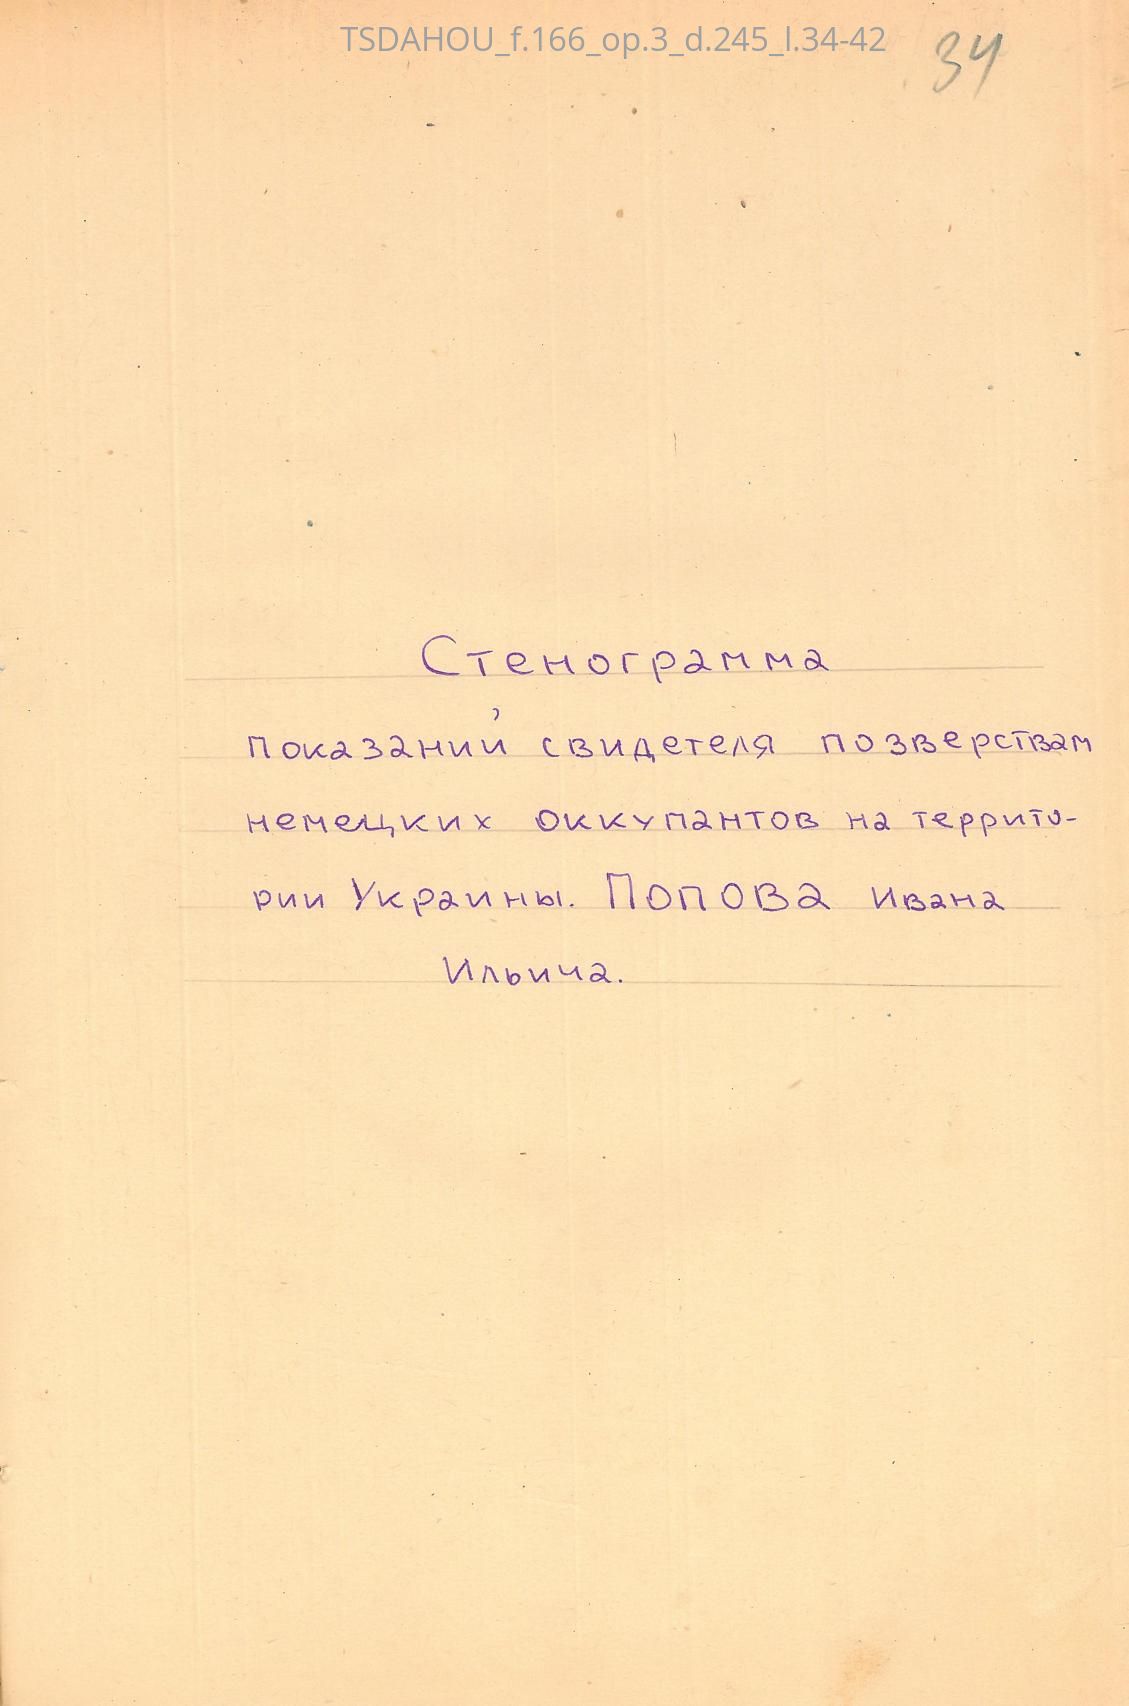 TSDAHOU_f.166_op.3_d.245_l.34-42
34
Стенограмма
показаний свидетеля по зверствам
немецких оккупантов на террито-
рии Украины. Попова Ивана
Ильича.